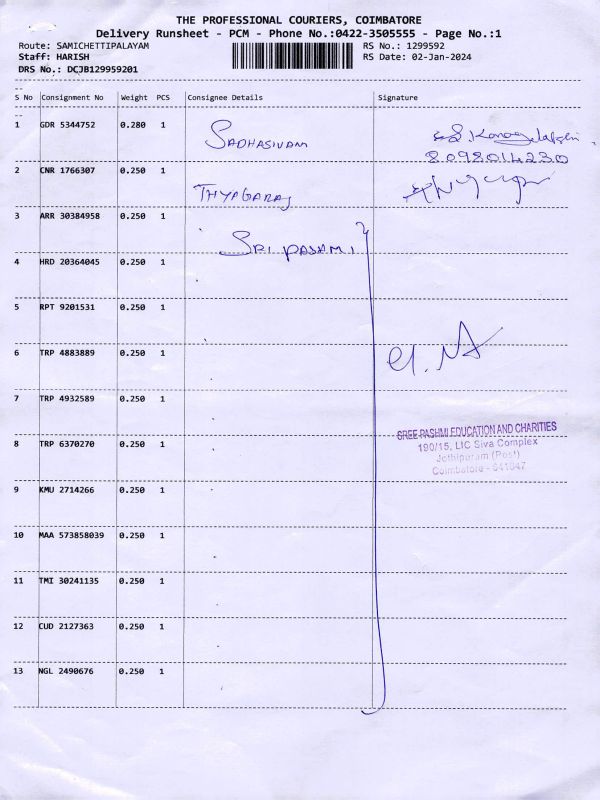 THE PROFESSIONAL COURIERS, COIMBATORE
Delivery Runsheet - PCM - Phone No.:0422-3505555 - Page No.:1
Route: SAMICHETTIPALAYAM RS No.: 1299592
Staff: HARISH RS Date: 02-Jan-2024
DRS No.: DCJB129959201
S No Consignment No Weight PCS Consignee Details Signature
1 GDR 5344752 0.280 1 SADHASIVAM
8098014230
2 CNR 1766307 0.250 1 THYAGARAJ
3 ARR 30384958 0.250 1 SRI PASAMI
4 HRD 20364045 0.250 1
5 RPT 9201531 0.250 1
6 TRP 4883889 0.250 1
7 TRP 4932589 0.250 1
SREE PASHMI EDUCATION AND CHARITIES
8 TRP 6370270 0.250 1 190/15, LIC Siva Complex
Jothipuram (Post)
Coimbatore - 641047
9 KMU 2714266 0.250 1
10 MAA 573858039 0.250 1
11 TMI 30241135 0.250 1
12 CUD 2127363 0.250 1
13 NGL 2490676 0.250 1